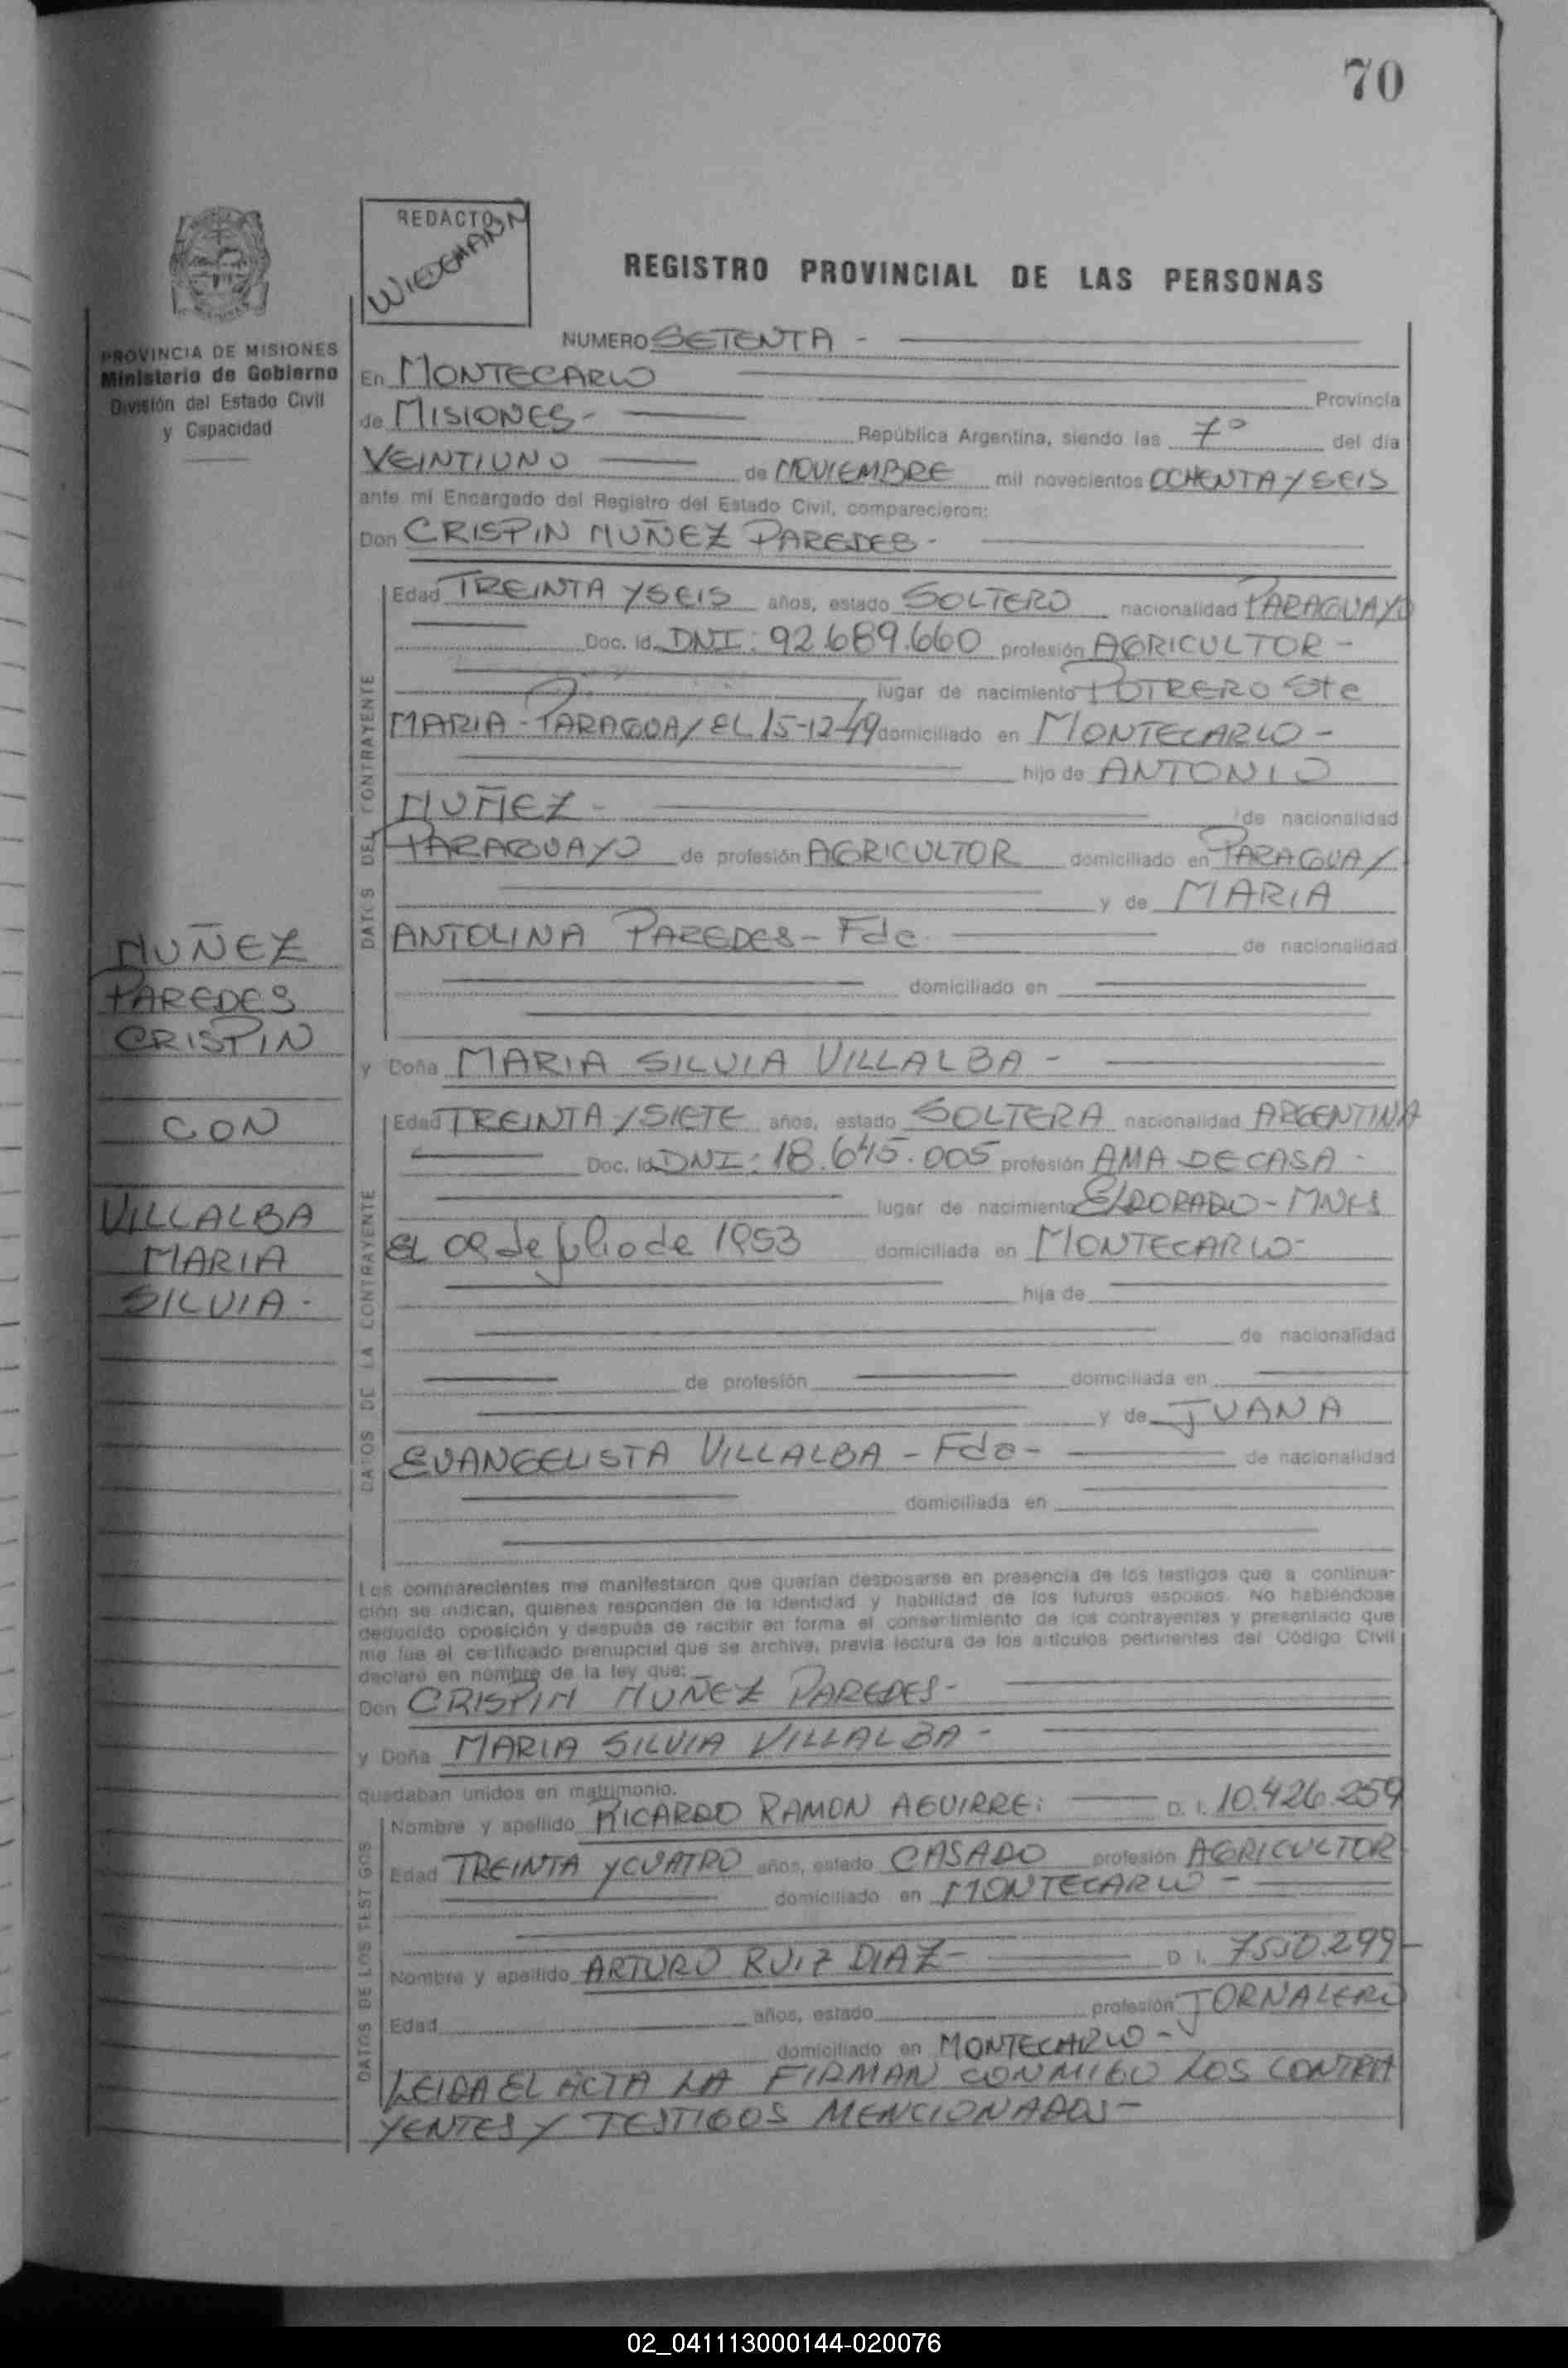 70
REDACTO
WIEDEMANN
REGISTRO PROVINCIAL DE LAS PERSONAS
PROVINCIA DE MISIONES
Ministerio de Gobierno
División del Estado Civil
y Capacidad
NUMERO SETENTA -
En MONTECARLO Provincia
de MISIONES - República Argentina, siendo las 7° del día
VEINTIUNO de NOVIEMBRE mil novecientos OCHENTA Y SEIS
ante mi Encargado del Registro del Estado Civil, comparecieron:
Don CRISPIN NUÑEZ PAREDES -
DATOS DEL CONTRAYENTE
Edad TREINTA Y SEIS años, estado SOLTERO nacionalidad PARAGUAYO
Doc. Id. DNI: 92.689.660 profesión AGRICULTOR -
lugar de nacimiento POTRERO Ste
MARIA - PARAGUAY EL 15-12-49 domiciliado en MONTECARLO -
hijo de ANTONIO
NUÑEZ - de nacionalidad
PARAGUAYO de profesión AGRICULTOR domiciliado en PARAGUAY
y de MARIA
ANTOLINA PAREDES - Fdc. de nacionalidad
domiciliado en
NUÑEZ
PAREDES
CRISPIN
CON
VILLALBA
MARIA
SILVIA -
y Doña MARIA SILVIA VILLALBA -
DATOS DE LA CONTRAYENTE
Edad TREINTA Y SIETE años, estado SOLTERA nacionalidad ARGENTINA
Doc. Id. DNI: 18.645.005 profesión AMA DE CASA -
lugar de nacimiento ELDORADO - MNES
EL 09 de julio de 1953 domiciliada en MONTECARLO -
hija de
de nacionalidad
de profesión domiciliada en
y de JUANA
EVANGELISTA VILLALBA - Fda - de nacionalidad
domiciliada en
Los comparecientes me manifestaron que querían desposarse en presencia de los testigos que a continua-
ción se indican, quienes responden de la identidad y habilidad de los futuros esposos. No habiéndose
deducido oposición y después de recibir en forma el consentimiento de los contrayentes y presentado que
me fue el certificado prenupcial que se archiva, previa lectura de los artículos pertinentes del Código Civil
declaro en nombre de la ley que:
Don CRISPIN NUÑEZ PAREDES -
y Doña MARIA SILVIA VILLALBA -
quedaban unidos en matrimonio.
DATOS DE LOS TESTIGOS
Nombre y apellido RICARDO RAMON AGUIRRE: D. I. 10.426.259
Edad TREINTA Y CUATRO años, estado CASADO profesión AGRICULTOR
domiciliado en MONTECARLO -
Nombre y apellido ARTURO RUIZ DIAZ - D. I. 7550.299 -
Edad años, estado profesión JORNALERO
domiciliado en MONTECARLO -
LEIDA EL ACTA LA FIRMAN CONMIGO LOS CONTRA
YENTES Y TESTIGOS MENCIONADOS -
02_041113000144-020076